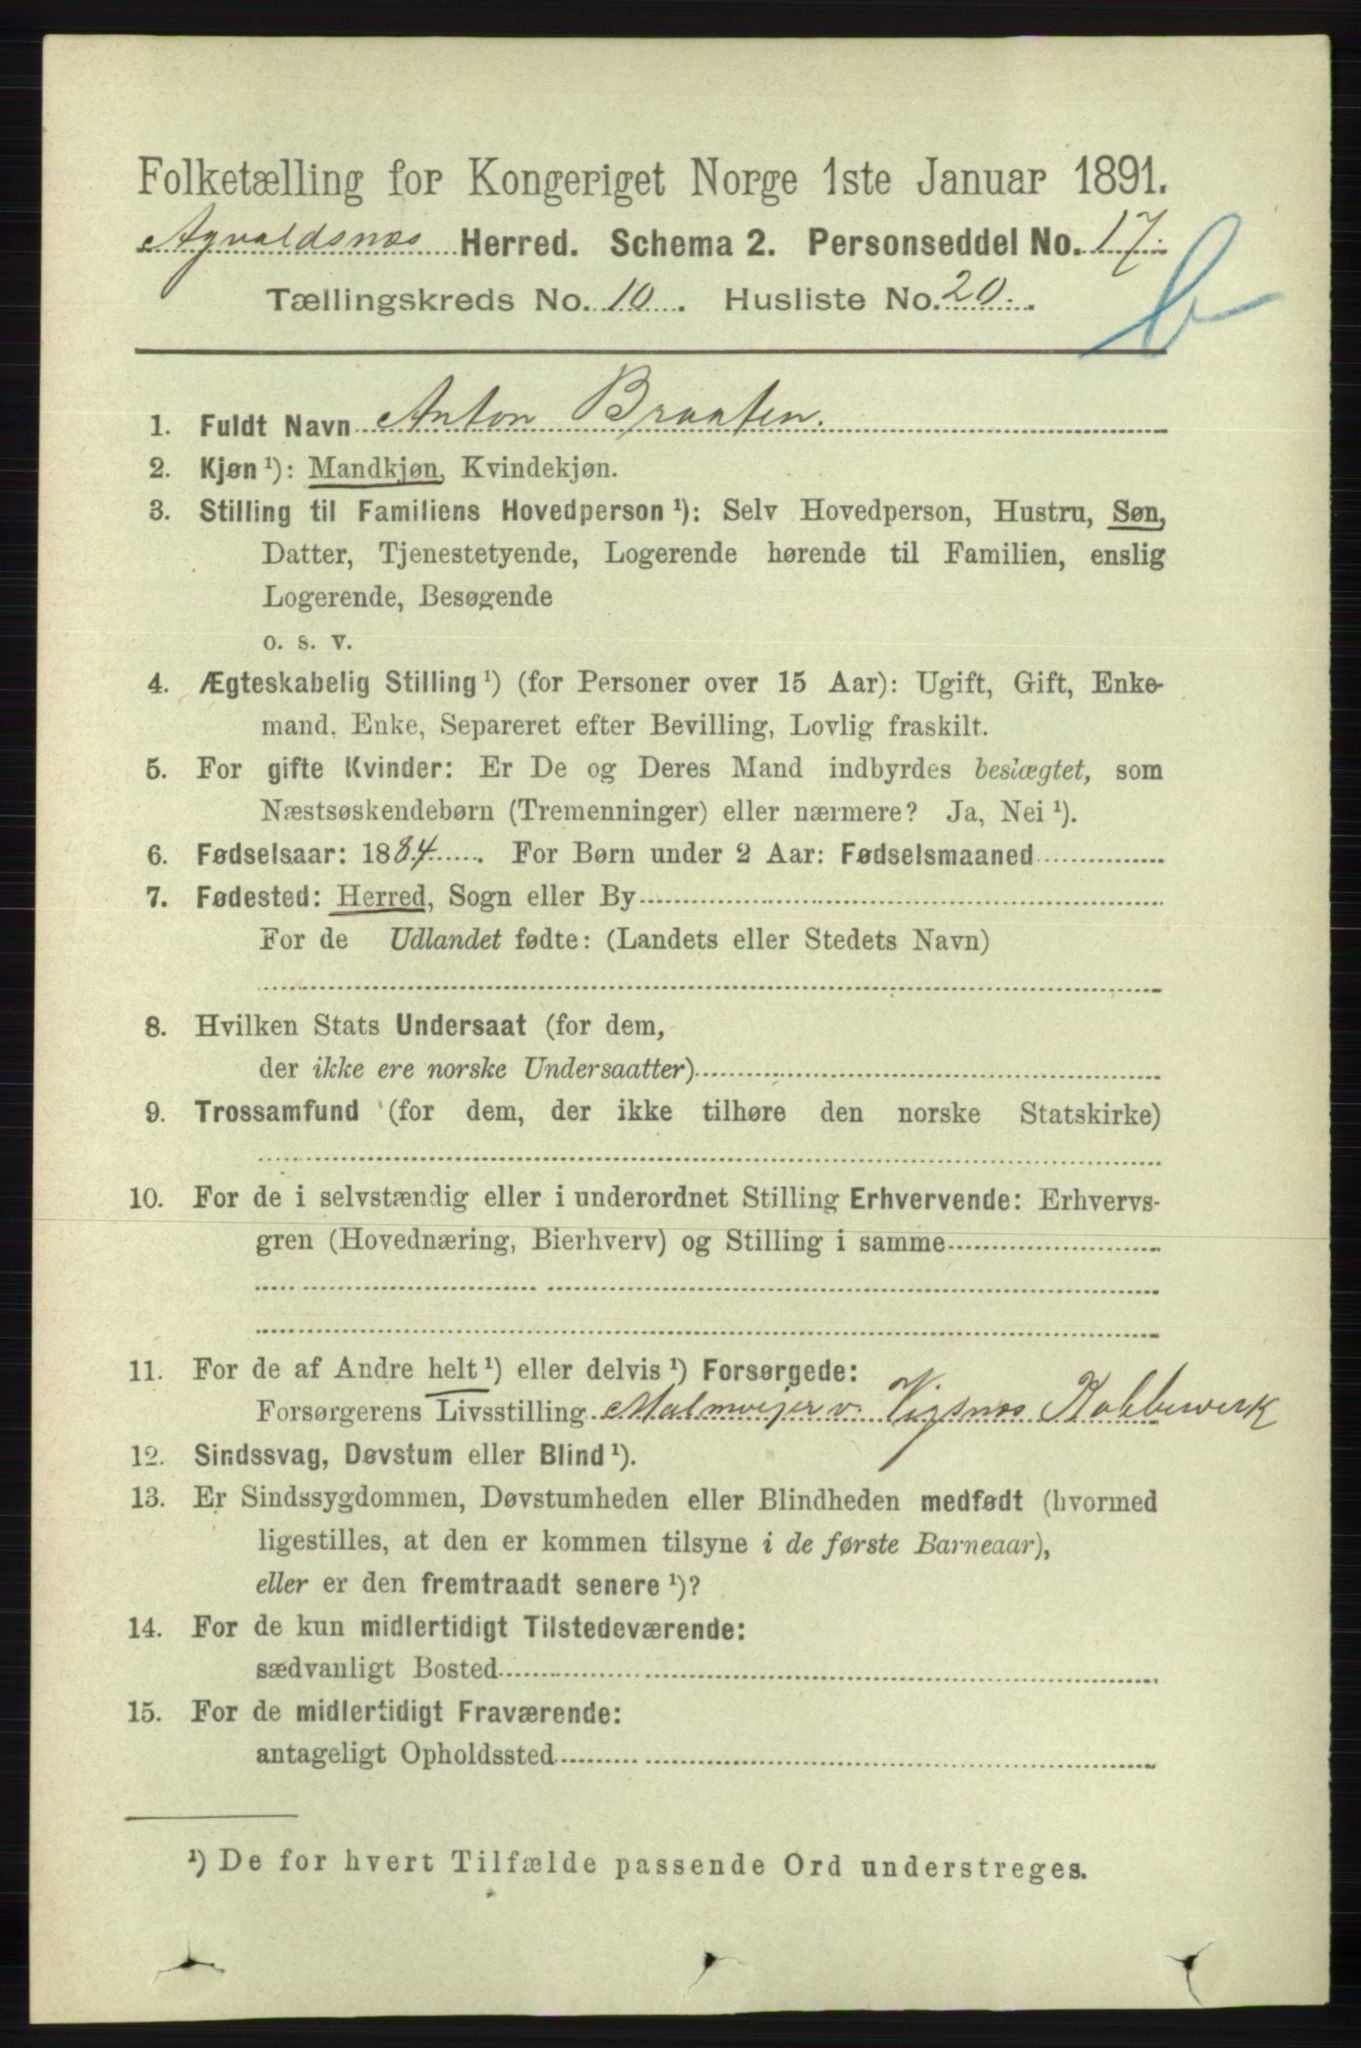 Folketælling for Kongeriget Norge 1ste Januar 1891.
Agvaldsnæs Herred. Schema 2. Personseddel No. 17.
Tællingskreds No. 10. Husliste No. 20.
b
1. Fuldt Navn Anton Braaten.
2. Kjøn ¹): Mandkjøn, Kvindekjøn.
3. Stilling til Familiens Hovedperson ¹): Selv Hovedperson, Hustru, Søn,
Datter, Tjenestetyende, Logerende hørende til Familien, enslig
Logerende, Besøgende
o. s. v.
4. Ægteskabelig Stilling ¹) (for Personer over 15 Aar): Ugift, Gift, Enke-
mand, Enke, Separeret efter Bevilling, Lovlig fraskilt.
5. For gifte Kvinder: Er De og Deres Mand indbyrdes beslægtet, som
Næstsøskendebørn (Tremenninger) eller nærmere? Ja, Nei ¹).
6. Fødselsaar: 1884. For Børn under 2 Aar: Fødselsmaaned
7. Fødested: Herred, Sogn eller By
For de Udlandet fødte: (Landets eller Stedets Navn)
8. Hvilken Stats Undersaat (for dem,
der ikke ere norske Undersaatter)
9. Trossamfund (for dem, der ikke tilhøre den norske Statskirke)
10. For de i selvstændig eller i underordnet Stilling Erhvervende: Erhvervs-
gren (Hovednæring, Bierhverv) og Stilling i samme
11. For de af Andre helt ¹) eller delvis ¹) Forsørgede:
Forsørgerens Livsstilling Malmvejer v. Vigsnæs Kobberverk
12. Sindssvag, Døvstum eller Blind ¹).
13. Er Sindssygdommen, Døvstumheden eller Blindheden medfødt (hvormed
ligestilles, at den er kommen tilsyne i de første Barneaar),
eller er den fremtraadt senere ¹)?
14. For de kun midlertidigt Tilstedeværende:
sædvanligt Bosted
15. For de midlertidigt Fraværende:
antageligt Opholdssted
¹) De for hvert Tilfælde passende Ord understreges.